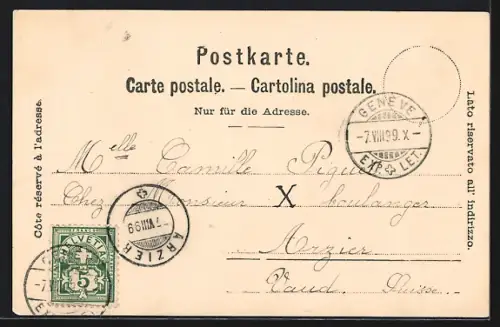 Postkarte.
Carte postale. — Cartolina postale.
Nur für die Adresse.
Côte réservé à l'adresse.
Lato riservato all' indirizzo.
GENÈVE 1
-7.VIII 99. X-
EXP. LET.
Melle Camille Piguet
Chez Monsieur X boulanger
Arzier
Vaud, Suisse.
ARZIER
-7 VIII 99
HELVETIA
5